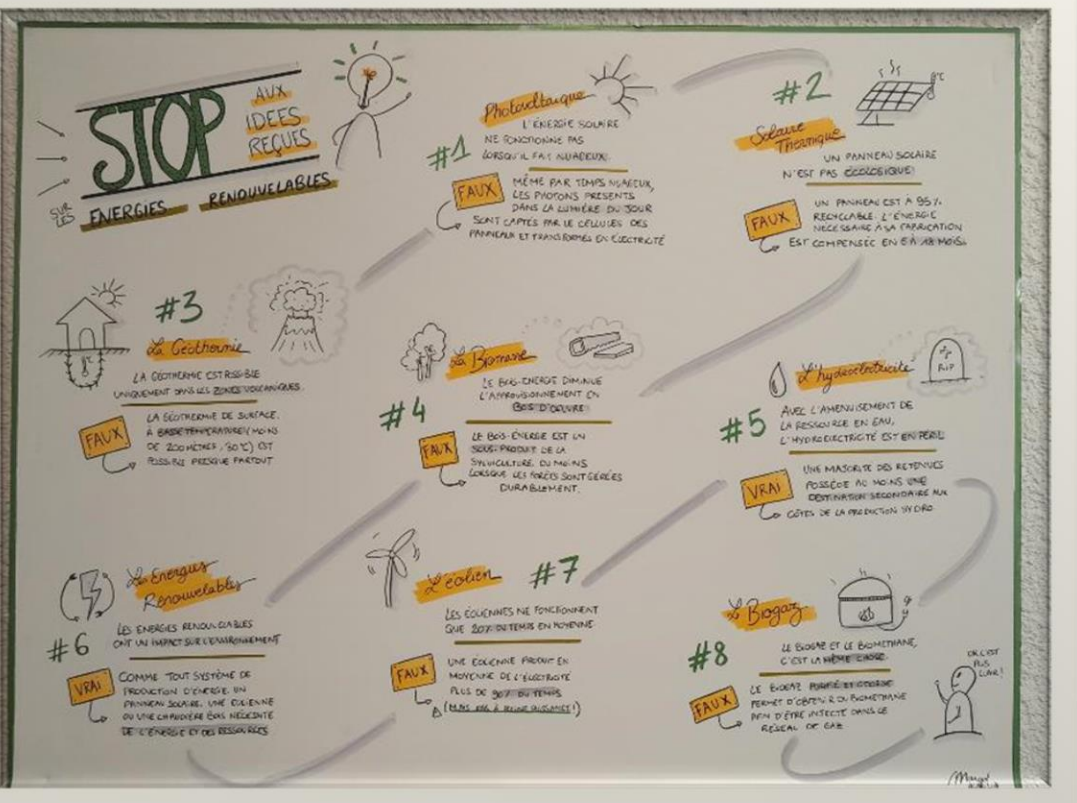 STOP
AUX
IDEES
REÇUES
SUR
LES
ENERGIES RENOUVELABLES
#1
Photovoltaïque
L'ÉNERGIE SOLAIRE
NE FONCTIONNE PAS
LORSQU'IL FAIT NUAGEUX.
FAUX
MÊME PAR TEMPS NUAGEUX,
LES PHOTONS PRESENTS
DANS LA LUMIÈRE DU JOUR
SONT CAPTÉS PAR LE CELLULES DES
PANNEAUX ET TRANSFORMÉS EN ÉLECTRICITÉ
#2
Solaire
Thermique
UN PANNEAU SOLAIRE
N'EST PAS ÉCOLOGIQUE!
FAUX
UN PANNEAU EST A 95%
RECYCLABLE. L'ÉNERGIE
NÉCESSAIRE À SA FABRICATION
EST COMPENSÉE EN 6 À 18 MOIS.
#3
La Géothermie
LA GÉOTHERMIE EST POSSIBLE
UNIQUEMENT DANS LES ZONES VOLCANIQUES.
FAUX
LA GÉOTHERMIE DE SURFACE,
À BASSE TEMPERATURE (MOINS
DE 200 MÈTRES, 30°C) EST
POSSIBLE PRESQUE PARTOUT
#4
La Biomasse
LE BOIS-ENERGIE DIMINUE
L'APPROVISIONNEMENT EN
BOIS D'OEUVRE
FAUX
LE BOIS-ÉNERGIE EST UN
SOUS-PRODUIT DE LA
SYLVICULTURE, DU MOINS
LORSQUE LES FORÊTS SONT GÉRÉES
DURABLEMENT.
#5
L'hydroélectricité
RIP
AVEC L'AMENUISEMENT DE
LA RESSOURCE EN EAU,
L'HYDROELECTRICITÉ EST EN PÉRIL
VRAI
UNE MAJORITÉ DES RETENUES
POSSÈDE AU MOINS UNE
DESTINATION SECONDAIRE AUX
CÔTÉS DE LA PRODUCTION HYDRO.
#6
Les Energies
Renouvelables
LES ENERGIES RENOUVELABLES
ONT UN IMPACT SUR L'ENVIRONNEMENT
VRAI
COMME TOUT SYSTÈME DE
PRODUCTION D'ÉNERGIE UN
PANNEAU SOLAIRE, UNE ÉOLIENNE
OU UNE CHAUDIÈRE BOIS NÉCESSITE
DE L'ÉNERGIE ET DES RESSOURCES
#7
L'éolien
LES ÉOLIENNES NE FONCTIONNENT
QUE 20% DU TEMPS EN MOYENNE
FAUX
UNE ÉOLIENNE PRODUIT EN
MOYENNE DE L'ÉLECTRICITÉ
PLUS DE 90% DU TEMPS
(MAIS PAS À PLEINE PUISSANCE!)
#8
Le Biogaz
LE BIOGAZ ET LE BIOMETHANE,
C'EST LA MÊME CHOSE.
FAUX
LE BIOGAZ PURIFIÉ ET ODORISÉ
PERMET D'OBTENIR DU BIOMÉTHANE
AFIN D'ÊTRE INJECTÉ DANS LE
RÉSEAU DE GAZ
OK C'EST
PLUS
CLAIR!